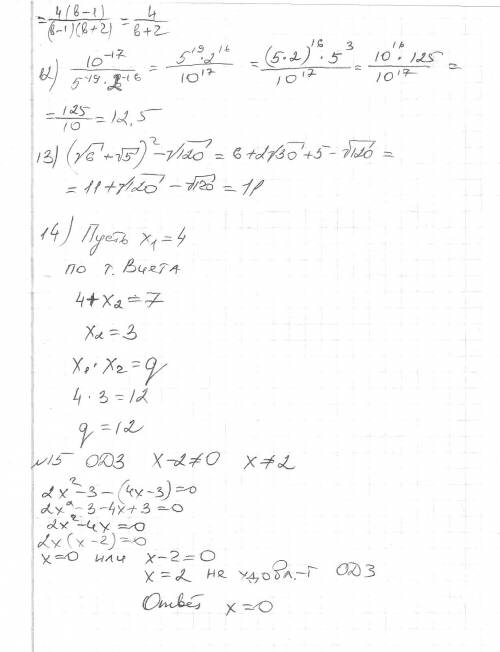 = 4(b-1)/(b-1)(b+2) = 4/(b+2)
12) 10^-17/(5^-19 · 2^-16) = 5^19 · 2^16/10^17 = (5·2)^16 · 5^3/10^17 = 10^16 · 125/10^17 =
= 125/10 = 12,5
13) (√6 + √5)^2 - √120 = 6 + 2√30 + 5 - √120 =
= 11 + √120 - √120 = 11
14) Пусть x₁ = 4
по т. Виета
4 + x₂ = 7
x₂ = 3
x₁ · x₂ = q
4 · 3 = 12
q = 12
№15 ОДЗ x-2≠0 x≠2
2x² - 3 - (4x-3) = 0
2x² - 3 - 4x + 3 = 0
2x² - 4x = 0
2x(x-2) = 0
x=0 или x-2=0
x=2 не удовл.-т ОДЗ
Ответ x=0